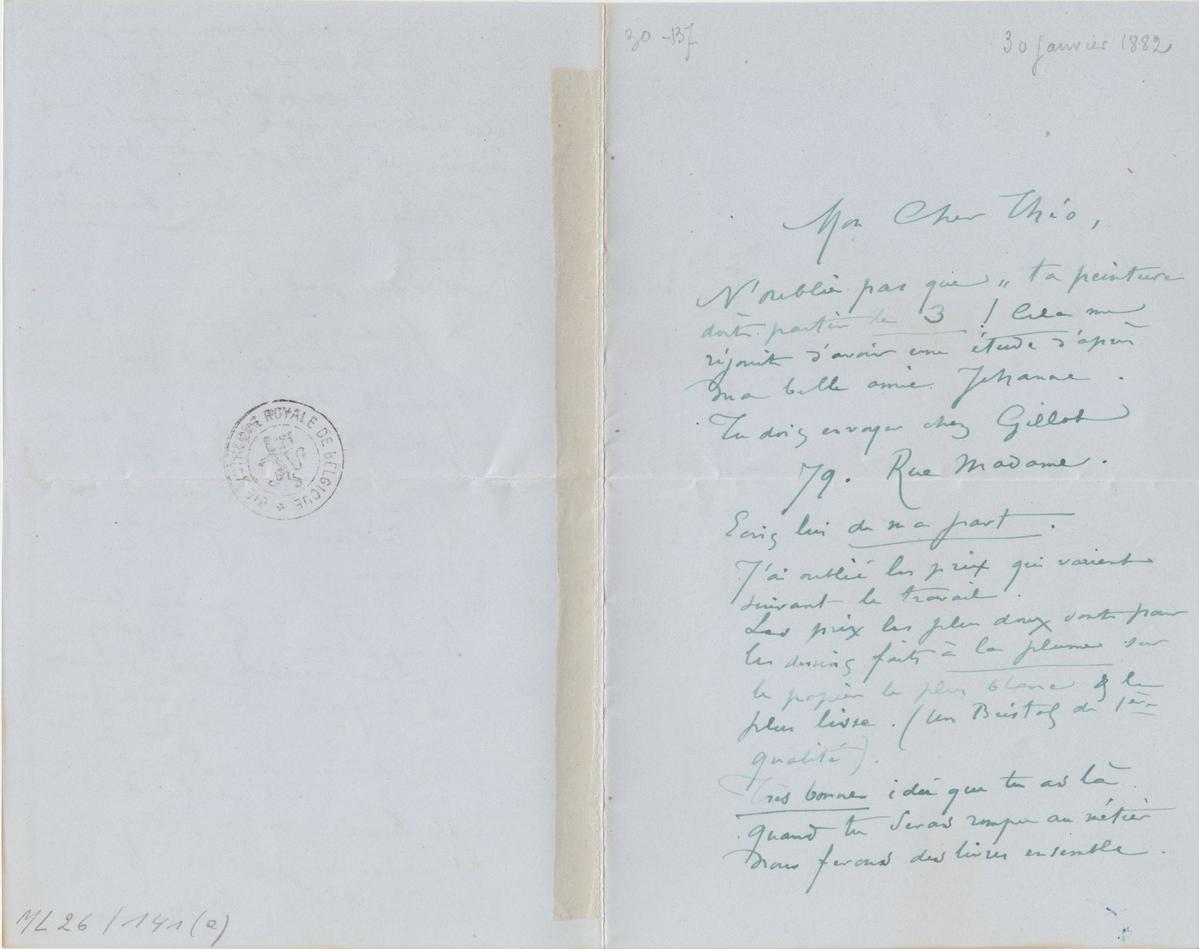 BIBLIOTHEQUE ROYALE DE BELGIQUE
ML 26 / 141 (a)
30 - B7
30 janvier 1882
Mon Cher Théo,
N'oublie pas que „ ta peinture
doit partir le 3 ! Cela me
réjouit d'avoir une étude d'après
ma belle amie Jehanne .
Tu dois envoyer chez Gillot
79. Rue Madame .
Ecris lui de ma part .
J'ai oublié les prix qui varient
suivant le travail .
Les prix les plus doux sont pour
les dessins faits à la plume sur
le papier le plus blanc & le
plus lisse . (un Bristol de 1ère
qualité).
Très bonne idée que tu as là .
Quand tu seras rompu au métier
nous ferons des livres ensemble .